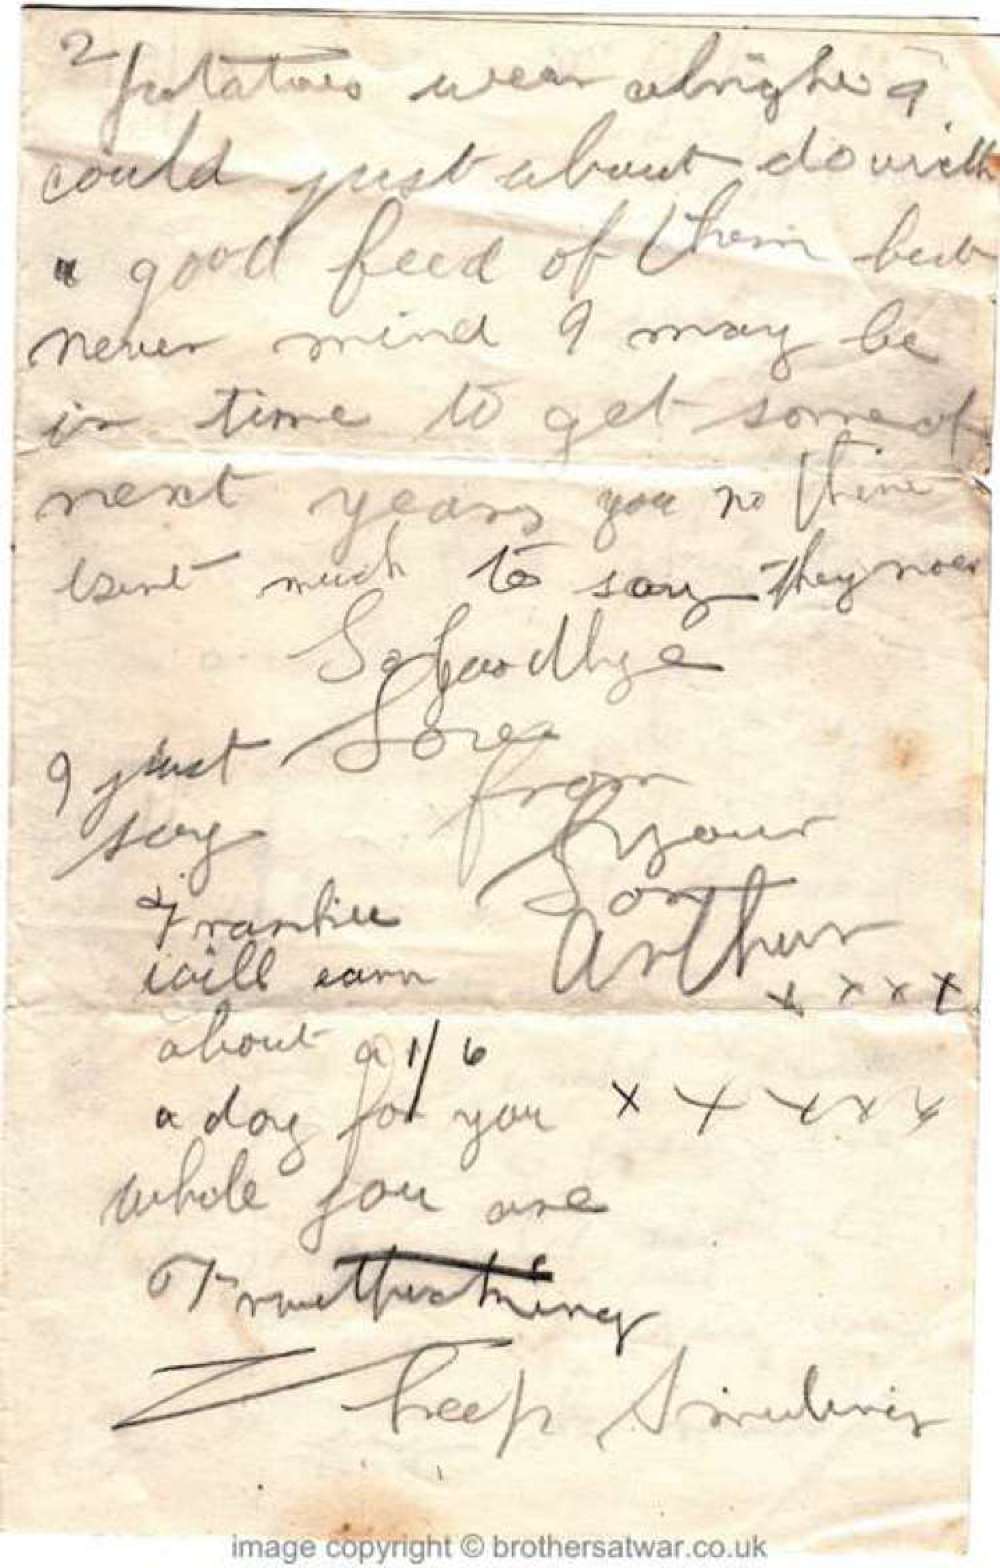 2
potatoes wear alright I
could just about do with
a good feed of them but
never mind I may be
in time to get some of
next years you no thire
isent much to say
So Goodbye
Love
from
your
Son
Arthur
x x x x
x x x x x
I just
say
Frankie
will earn
about a 1/6
a day for you
whole you are
Fruitpicking
keep Smileing
image copyright © brothersatwar.co.uk